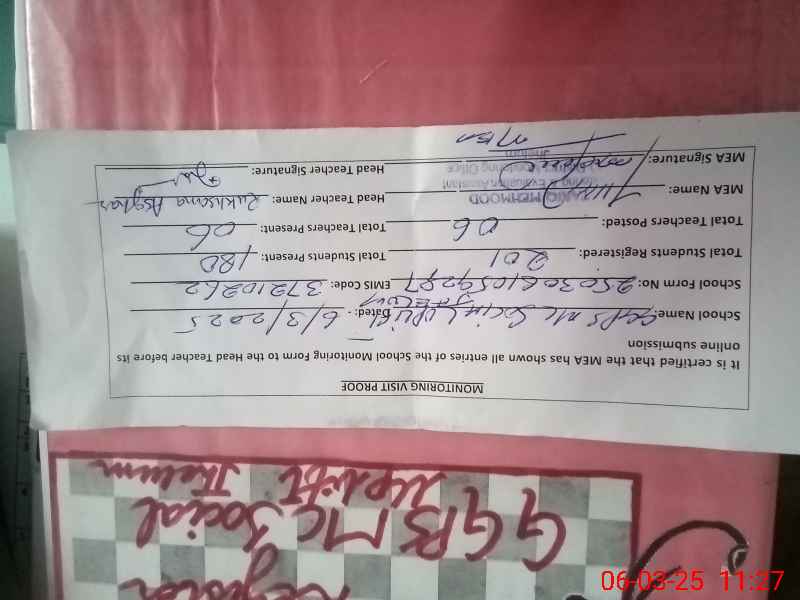 MONITORING VISIT PROOF
It is certified that the MEA has shown all entries of the School Monitoring Form to the Head Teacher before its
online submission
School Name: GGPS MC Social Uplift Jhelum Dated:- 6/3/2025
School Form No: EMIS Code: 37210262
Total Students Registered: 201 Total Students Present: 180
Total Teachers Posted: 06 Total Teachers Present: 06
MEA Name: Head Teacher Name: Rukhsana Asghar
MEA Signature: Head Teacher Signature:
MEHMOOD
Monitoring & Evaluation Assistant
District Monitoring Office
Jhelum
Register
GGPS MC Social
Uplift Jhelum
06-03-25 11:27